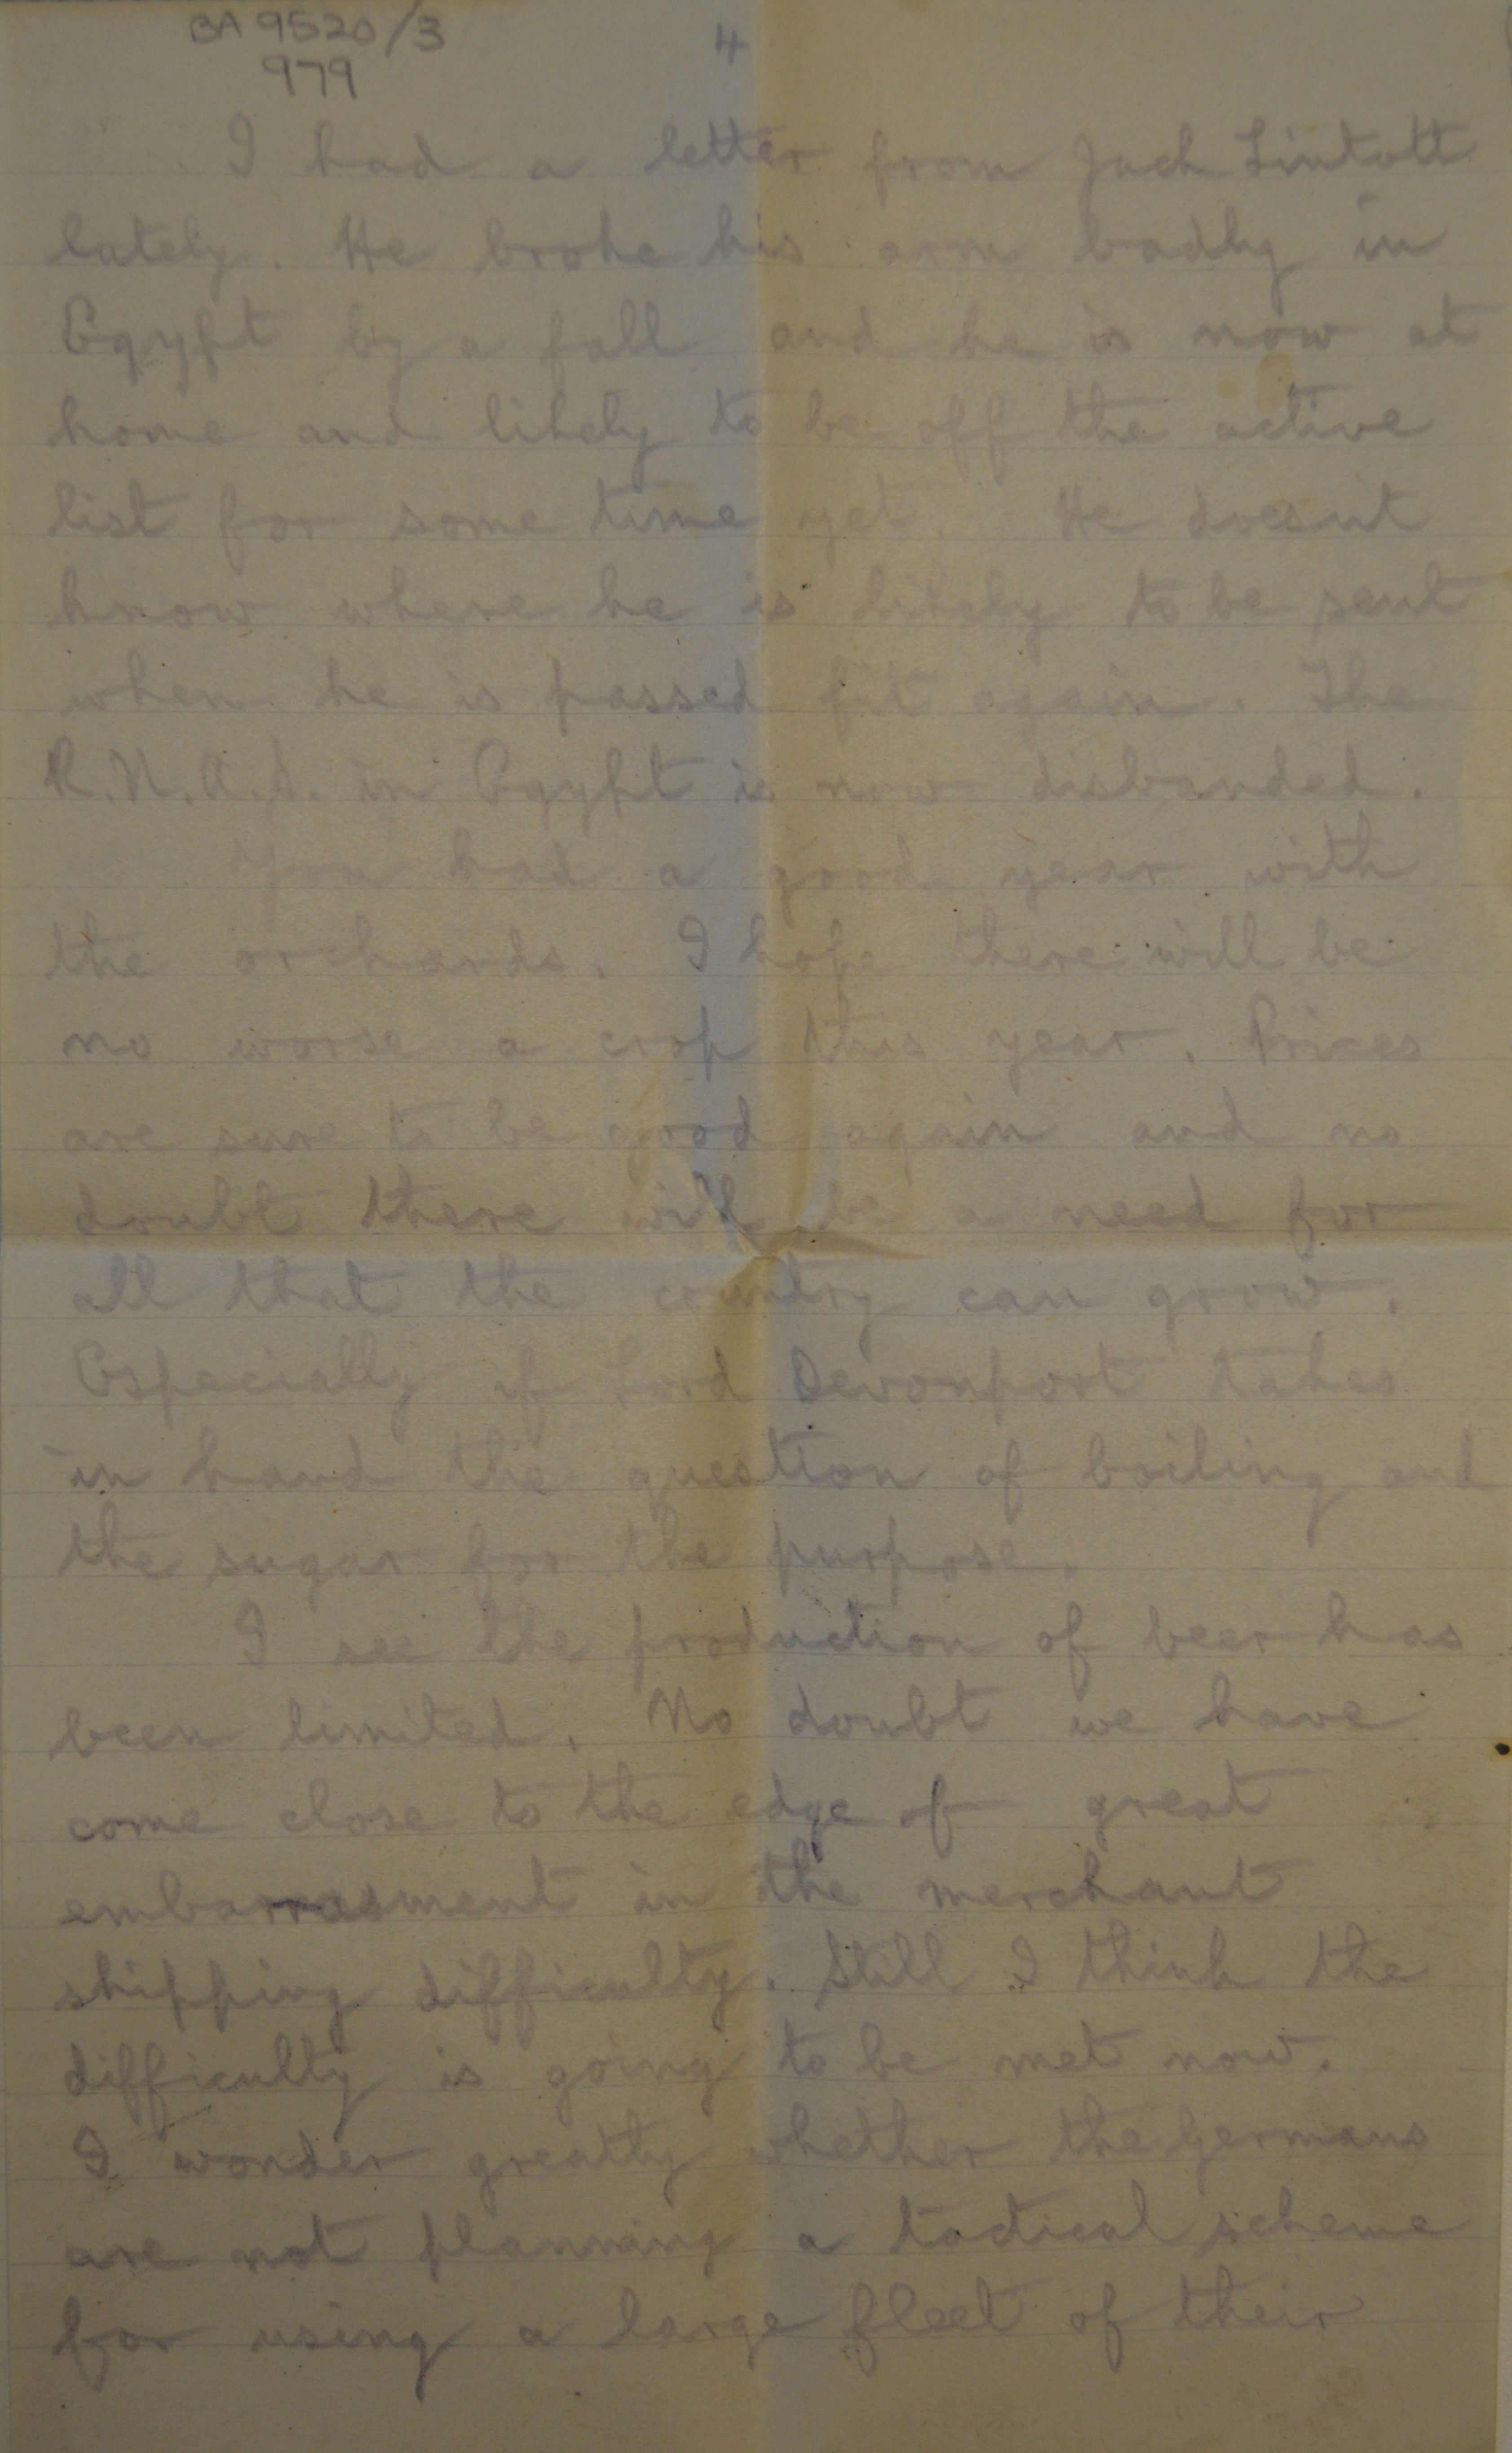 BA 9520/3
979
4
I had a letter from Jack Lintott
lately. He broke his arm badly in
Egypt by a fall and he is now at
home and likely to be off the active
list for some time yet. He doesn't
know where he is likely to be sent
when he is passed fit again. The
R.N.A.S. in Egypt is now disbanded.
You had a good year with
the orchards. I hope there will be
no worse a crop this year. Prices
are sure to be good again and no
doubt there will be a need for
all that the country can grow.
Especially if Lord Devonport takes
in hand the question of boiling and
the sugar for the purpose.
I see the production of beer has
been limited. No doubt we have
come close to the edge of great
embarrasment in the merchant
shipping difficulty. Still I think the
difficulty is going to be met now.
I wonder greatly whether the Germans
are not planning a tactical scheme
for using a large fleet of their